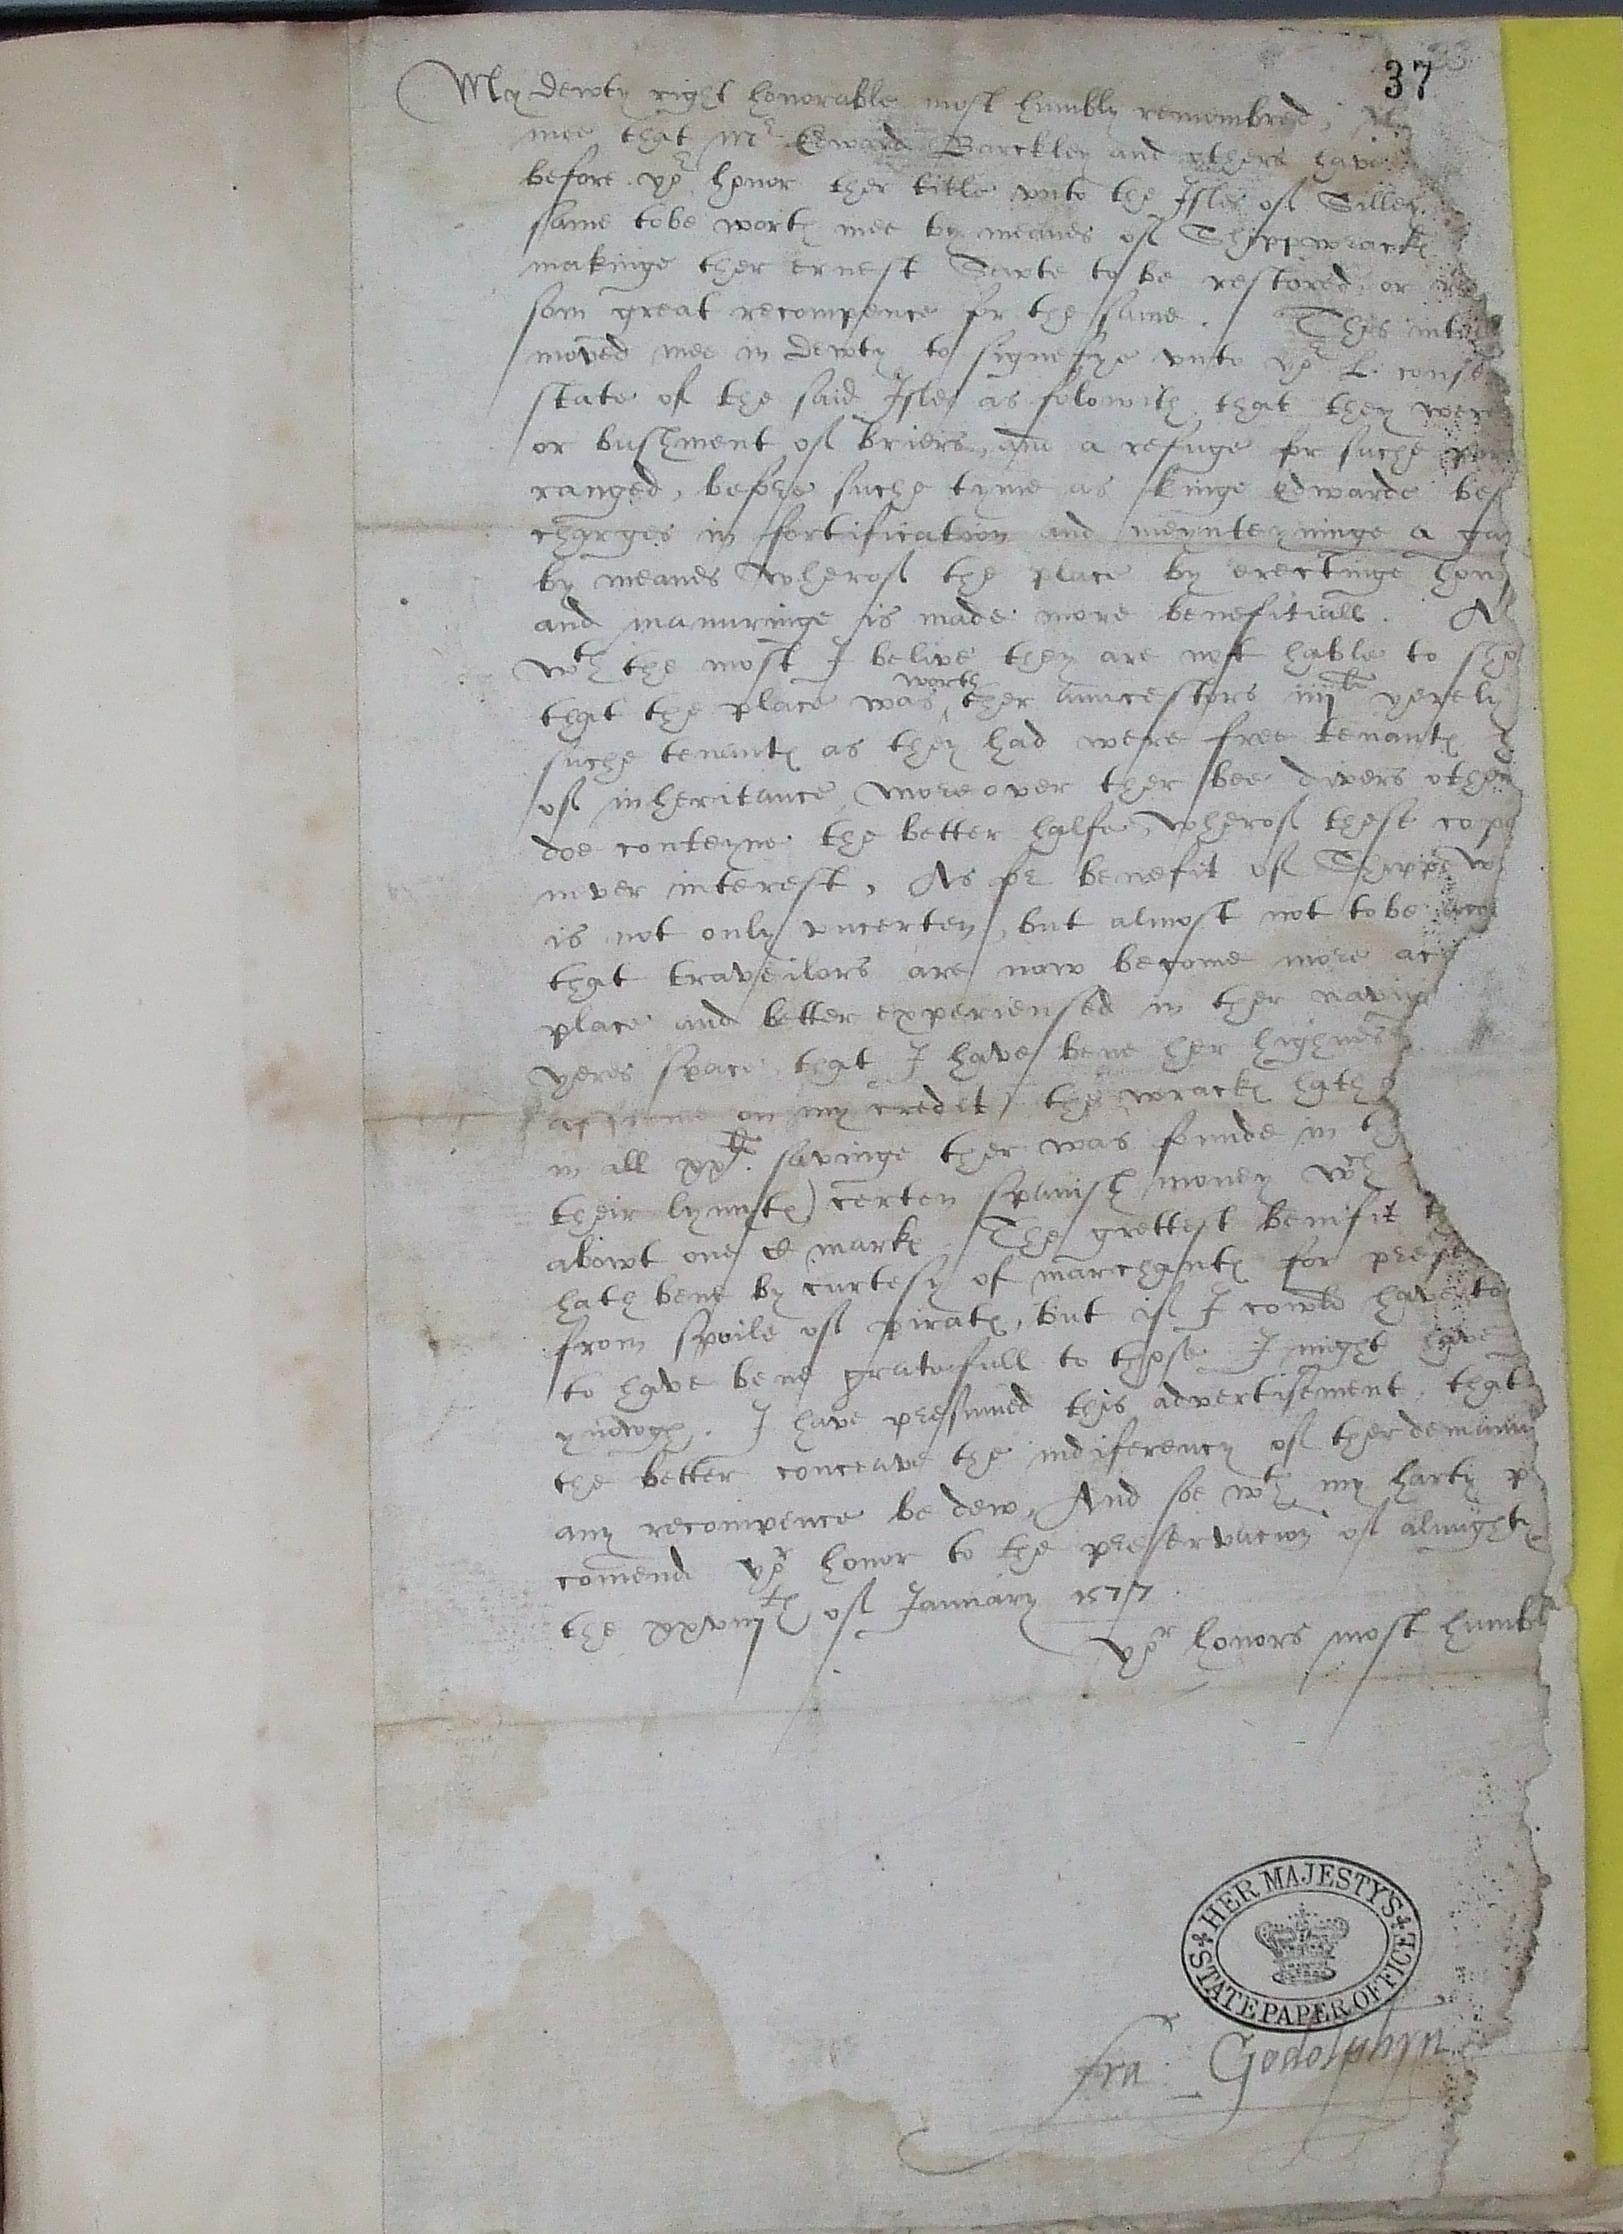 37
My dewty right honorable most humbly remembred,
mee that Mr Edward Barckley and others have
before yor honor ther title vnto the Isles of Silley
same tobe worth mee by meanes of Shippwrackes
makinge ther ernest Sewte to be restored or
som great recompence for the same. This
moved mee in dewty to signefye vnto yor L. 
state of the said Isles as folowith that they were
or bushment of briers, and a refuge for suche
ranged, before suche tyme as kinge Edwarde
charges in fortification and meynteyninge a
by meanes wherof the place by erectinge
and manuringe is made more benefitiall.
wth the most I belive they are not hable to
that the place was worth ther auncestors iiijli yerely
suche tenantes as they had were free tenantes
of inheritance, Moreover ther bee divers other
doe conteyne the better halfe, wherof these
never interest, As for benefit of Shippe
is not only vncerten, but almost not tobe
that traveilors are now become more
place and better experiensed in ther
yeres space that I have bene her highnes
affirme on my credet, the wrackes hath
in all xxli. savinge ther was founde in
their lymytes) certen spanish money wch
abowt one C markes. The grettest benifit
hath bene by curtesy of marchantes for
from spoile of pirates, but if I cowld have
to have bene gratefull to those I might have
ynowgh. I have presumed this advertisement, that
the better conceave the indiferency of ther
any recompence be dew, And soe wth my harty
comend yor honor to the preservacion of almighty
the xxviijth of January 1577
yor honors most
HER MAJESTY'S STATE PAPER OFFICE
fra: Godolphyn